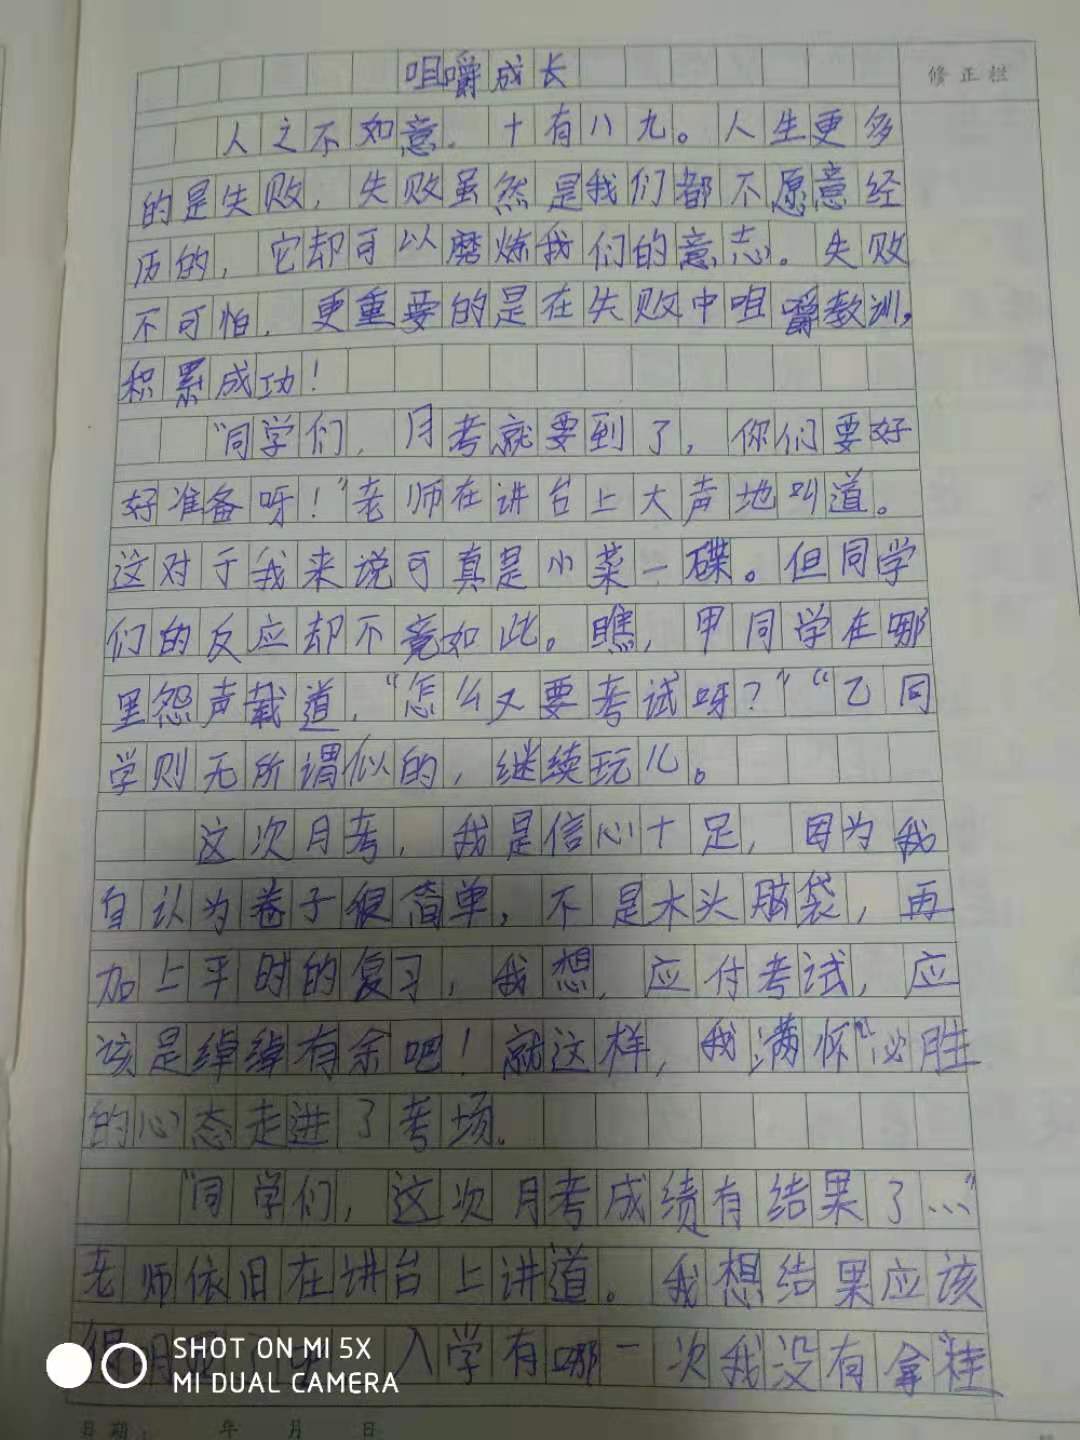 咀嚼成长
修正栏
人之不如意，十有八九。人生更多
的是失败，失败虽然是我们都不愿意经
历的，它却可以磨炼我们的意志。失败
不可怕，更重要的是在失败中咀嚼教训，
积累成功！
“同学们，月考就要到了，你们要好
好准备呀！”老师在讲台上大声地叫道。
这对于我来说可真是小菜一碟。但同学
们的反应却不竟如此。瞧，甲同学在哪
里怨声载道，“怎么又要考试呀？”“乙同
学则无所谓似的，继续玩儿。
这次月考，我是信心十足，因为我
自认为卷子很简单，不是木头脑袋，再
加上平时的复习，我想，应付考试，应
该是绰绰有余吧！就这样，我满怀“必胜
的心态走进了考场。
“同学们，这次月考成绩有结果了…”
老师依旧在讲台上讲道。我想结果应该
很明 入学有哪一次我没有拿“桂
SHOT ON MI 5X
MI DUAL CAMERA
日期： 年 月 日